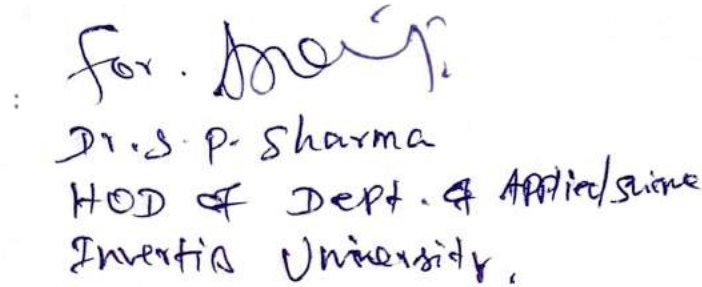 for.
:
Dr. S. P. Sharma
HOD of Dept. of Applied/Science
Invertis University.